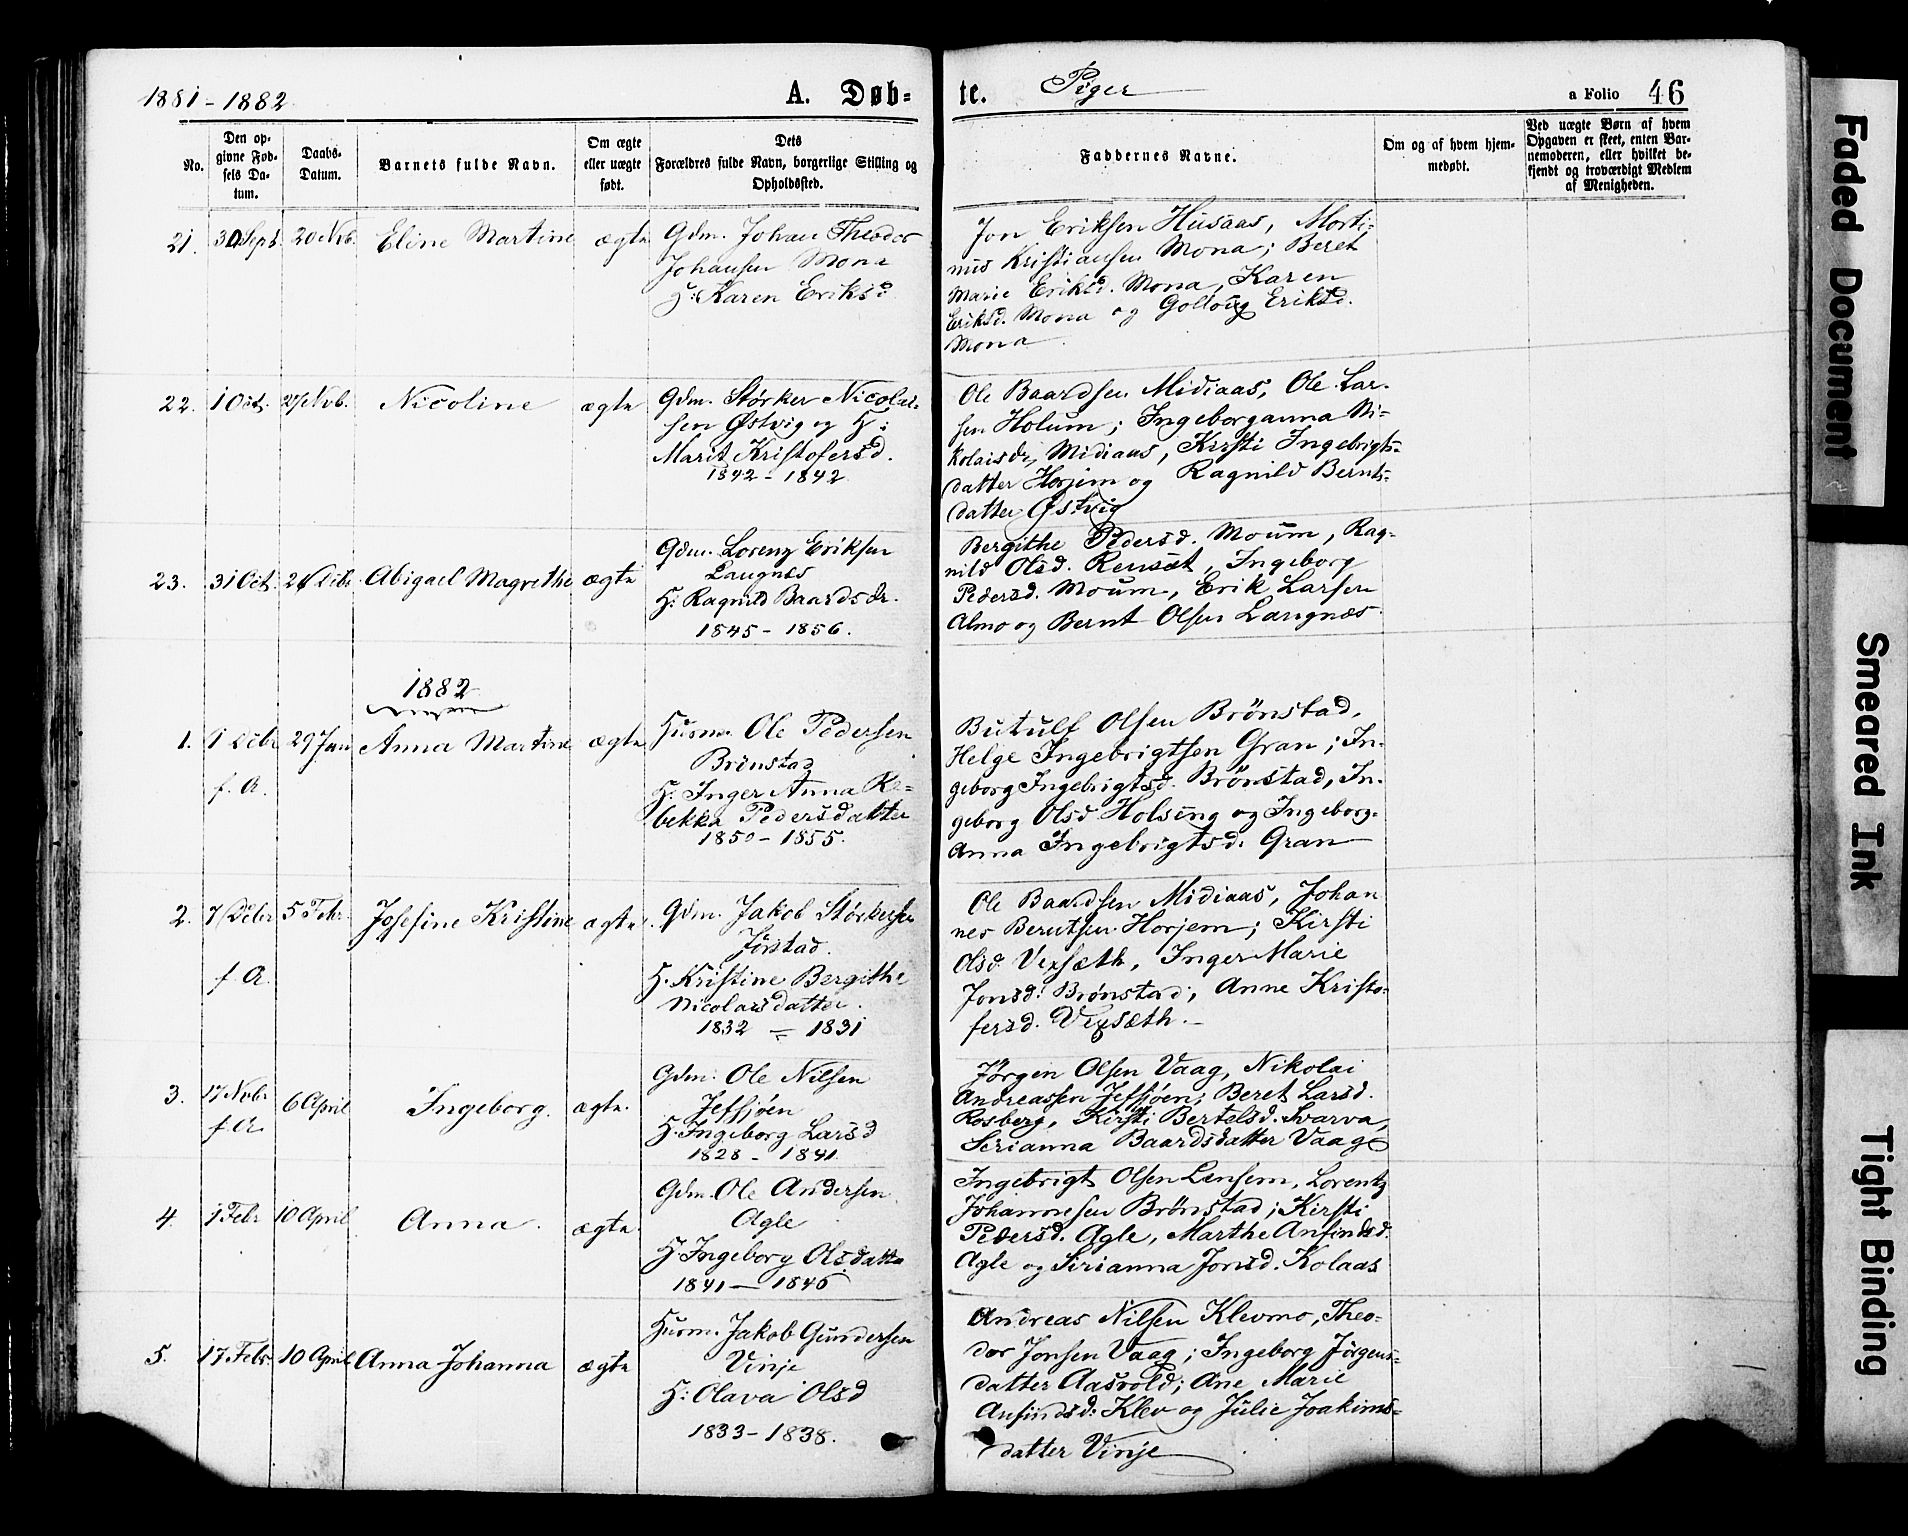 1881-1882
A. Døb-
te. Piger
a Folio 46
No.
Den op-
givne Fød-
sels Da-
tum.
Daabs-
Datum.
Barnets fulde Navn.
Om ægte
eller uægte
født.
Dets
Forældres fulde Navn, borgerlige Stilling og
Opholdssted.
Faddernes Navne.
Om og af hvem hjem-
medøbt.
Ved uægte Børn af hvem
Opgaven er skeet, enten Bar-
nemoderen, eller hvilket be-
kjendt og troværdigt Medlem
af Menigheden.
21. 30 Sept. 20 Nvb. Eline Martine ægte
Gdm. Johan Theodor
Johansen Mona
H: Karen Eriksd
Jon Eriksen Husaas, Morti-
nus Kristiansen Mona; Beret
Marie Eriksd. Mona, Karen
Eriksd. Mona og Gollaug Eriksd.
Mona.
22. 1 Oct. 27 Nvb. Nicoline ægte
Gdm. Størker Nicolai-
sen Østvig og H:
Marit Kristofersd.
1842 - 1842.
Ole Baardsen Midiaas, Ole Lar-
sen Holum; Ingeborganna Ni-
kolaisdr. Midiaas, Kirsti Ingebrigts-
datter Horjem og Ragnild Bernts-
datter Østvig
23. 31 Oct. Debr. Abigael Magrethe ægte
Gdm. Lorenz Eriksen
Langnes
H: Ragnild Baardsdr.
1845 - 1856.
Bergithe Pedersd. Moum, Rag-
nild Olsd. Rensæt, Ingeborg
Pedersd. Moum, Erik Larsen
Almo og Bernt Olsen Langnæs
1882
1. 1 Debr 29 Jan Anna Martine ægte
f. A.
Husm. Ole Pedersen
Brønstad
H: Inger Anna Re-
bekka Pedersdatter
1850 - 1855.
Butulf Olsen Brønstad,
Helge Ingebrigtsen Gran; In-
geborg Ingebrigtsd. Brønstad, In-
geborg Olsd Holsing og Ingeborg-
Anna Ingebrigtsd. Gran
2. 7 Debr 5 Febr. Josefine Kristine ægte.
f. A.
Gdm. Jakob Størkersen
Jørstad.
H. Kristine Bergithe
Nicolaisdatter.
1832 - 1831
Ole Baardsen Midiaas, Johan
nes Berntsen Horjem; Kirsti
Olsd. Vexsæth, Inger Marie
Jonsd. Brønstad, Anne Kristo-
fersd. Vexsæth. -
3. 17 Novbr 6 April Ingeborg. ægte.
f. A.
Gdm. Ole Nilsen
Jefsjøen
H. Ingeborg Larsd
1828 - 1841.
Jørgen Olsen Vaag, Nikolai
Andreassen Jefsjøen; Beret Larsd.
Rosberg, Kirsti Bertelsd. Svarva,
Serianna Baardsdatter Vaag
4. 1 Febr 10 April Anna. ægte.
Gdm. Ole Andersen
Agle
H. Ingeborg Olsdatter
1841 - 1845
Ingebrigt Olsen Lensem, Lorentz
Johannesen Brønstad; Kirsti
Pedersd. Agle, Marthe Anfindsd.
Agle og Serianna Jonsd. Kolaas
5. 17 Febr. 10 April Anna Johanna ægte
Husm. Jakob Gundersen
Vinje
H: Olava Olsd
1833 - 1838.
Andreas Nilsen Klevmo, Theo-
dor Jonsen Vaag; Ingeborg Jørgens-
datter Aasvold; Ane Marie
Anfindsd. Klev og Julie Joakims-
datter Vinje
Faded Document
Smeared Ink
Tight Binding